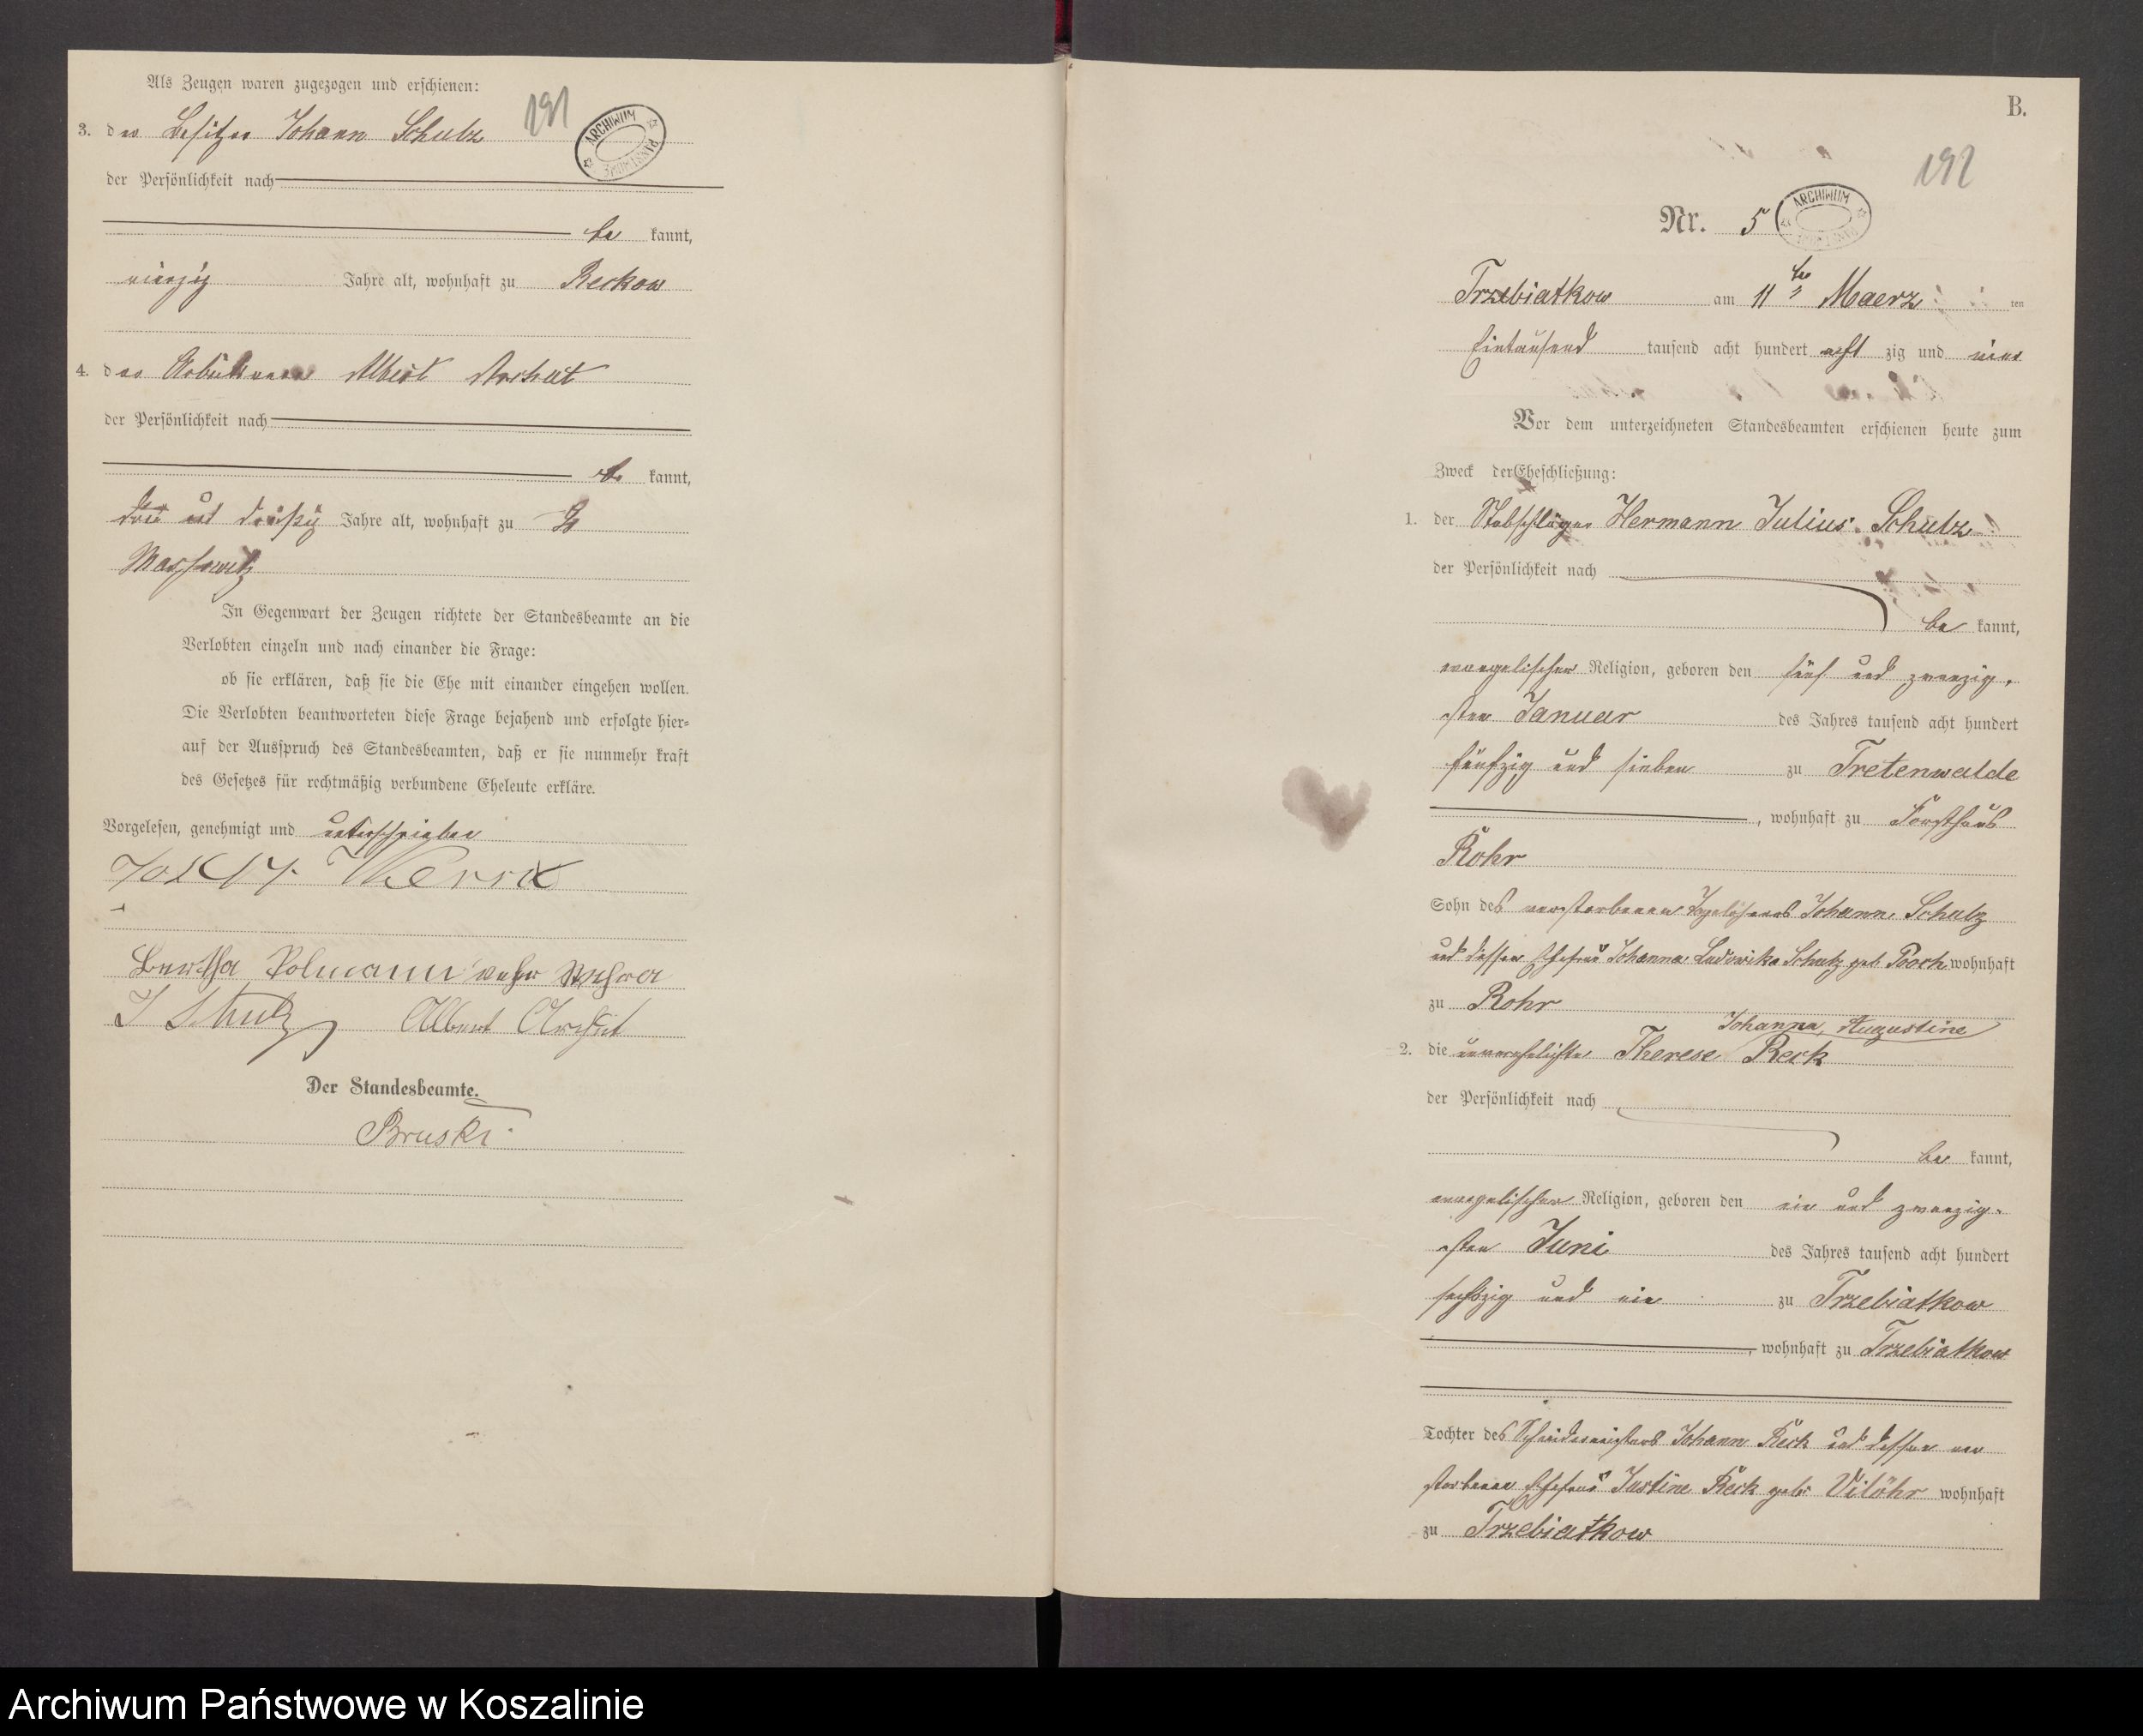 Als Zeugen waren zugezogen und erschienen:
191
ARCHIWUM
3. der Besitzer Johann Schulz
der Persönlichkeit nach
be kannt,
vierzig Jahre alt, wohnhaft zu Reckow
4. der Arbeitsmann Albert
der Persönlichkeit nach
be kannt,
drei und dreißig Jahre alt, wohnhaft zu
Massowitz
In Gegenwart der Zeugen richtete der Standesbeamte an die
Verlobten einzeln und nach einander die Frage:
ob sie erklären, daß sie die Ehe mit einander eingehen wollen.
Die Verlobten beantworteten diese Frage bejahend und erfolgte hier-
auf der Ausspruch des Standesbeamten, daß er sie nunmehr kraft
des Gesetzes für rechtmäßig verbundene Eheleute erkläre.
Vorgelesen, genehmigt und unterschrieben
Bertha Polmann
J Schulz Albert
Der Standesbeamte.
Bruski
B.
192
Nr. 5
ARCHIWUM
Trzebiatkow am 11 ten Maerz ten
Eintausend tausend acht hundert acht zig und vier
Vor dem unterzeichneten Standesbeamten erschienen heute zum
Zweck der Eheschließung:
1. der Stabschläger Hermann Julius Schulz
der Persönlichkeit nach
be kannt,
evangelischer Religion, geboren den fünf und zwanzig-
sten Januar des Jahres tausend acht hundert
fünfzig und sieben zu Tretenwalde
, wohnhaft zu Forsthaus
Rohr
Sohn des verstorbenen Johann Schulz
und dessen Ehefrau Johanna Ludowika Schulz geb Posch wohnhaft
zu Rohr
Johanna, Augustine
2. die unverehelichte Therese Reck
der Persönlichkeit nach
be kannt,
evangelischer Religion, geboren den ein und zwanzig-
sten Juni des Jahres tausend acht hundert
sechszig und ein zu Trzebiatkow
, wohnhaft zu Trzebiatkow
Tochter des Schneidermeisters Johann Reck und dessen ver
storbene Ehefrau Justine Reck geb: Vilöhr wohnhaft
zu Trzebiatkow
Archiwum Państwowe w Koszalinie